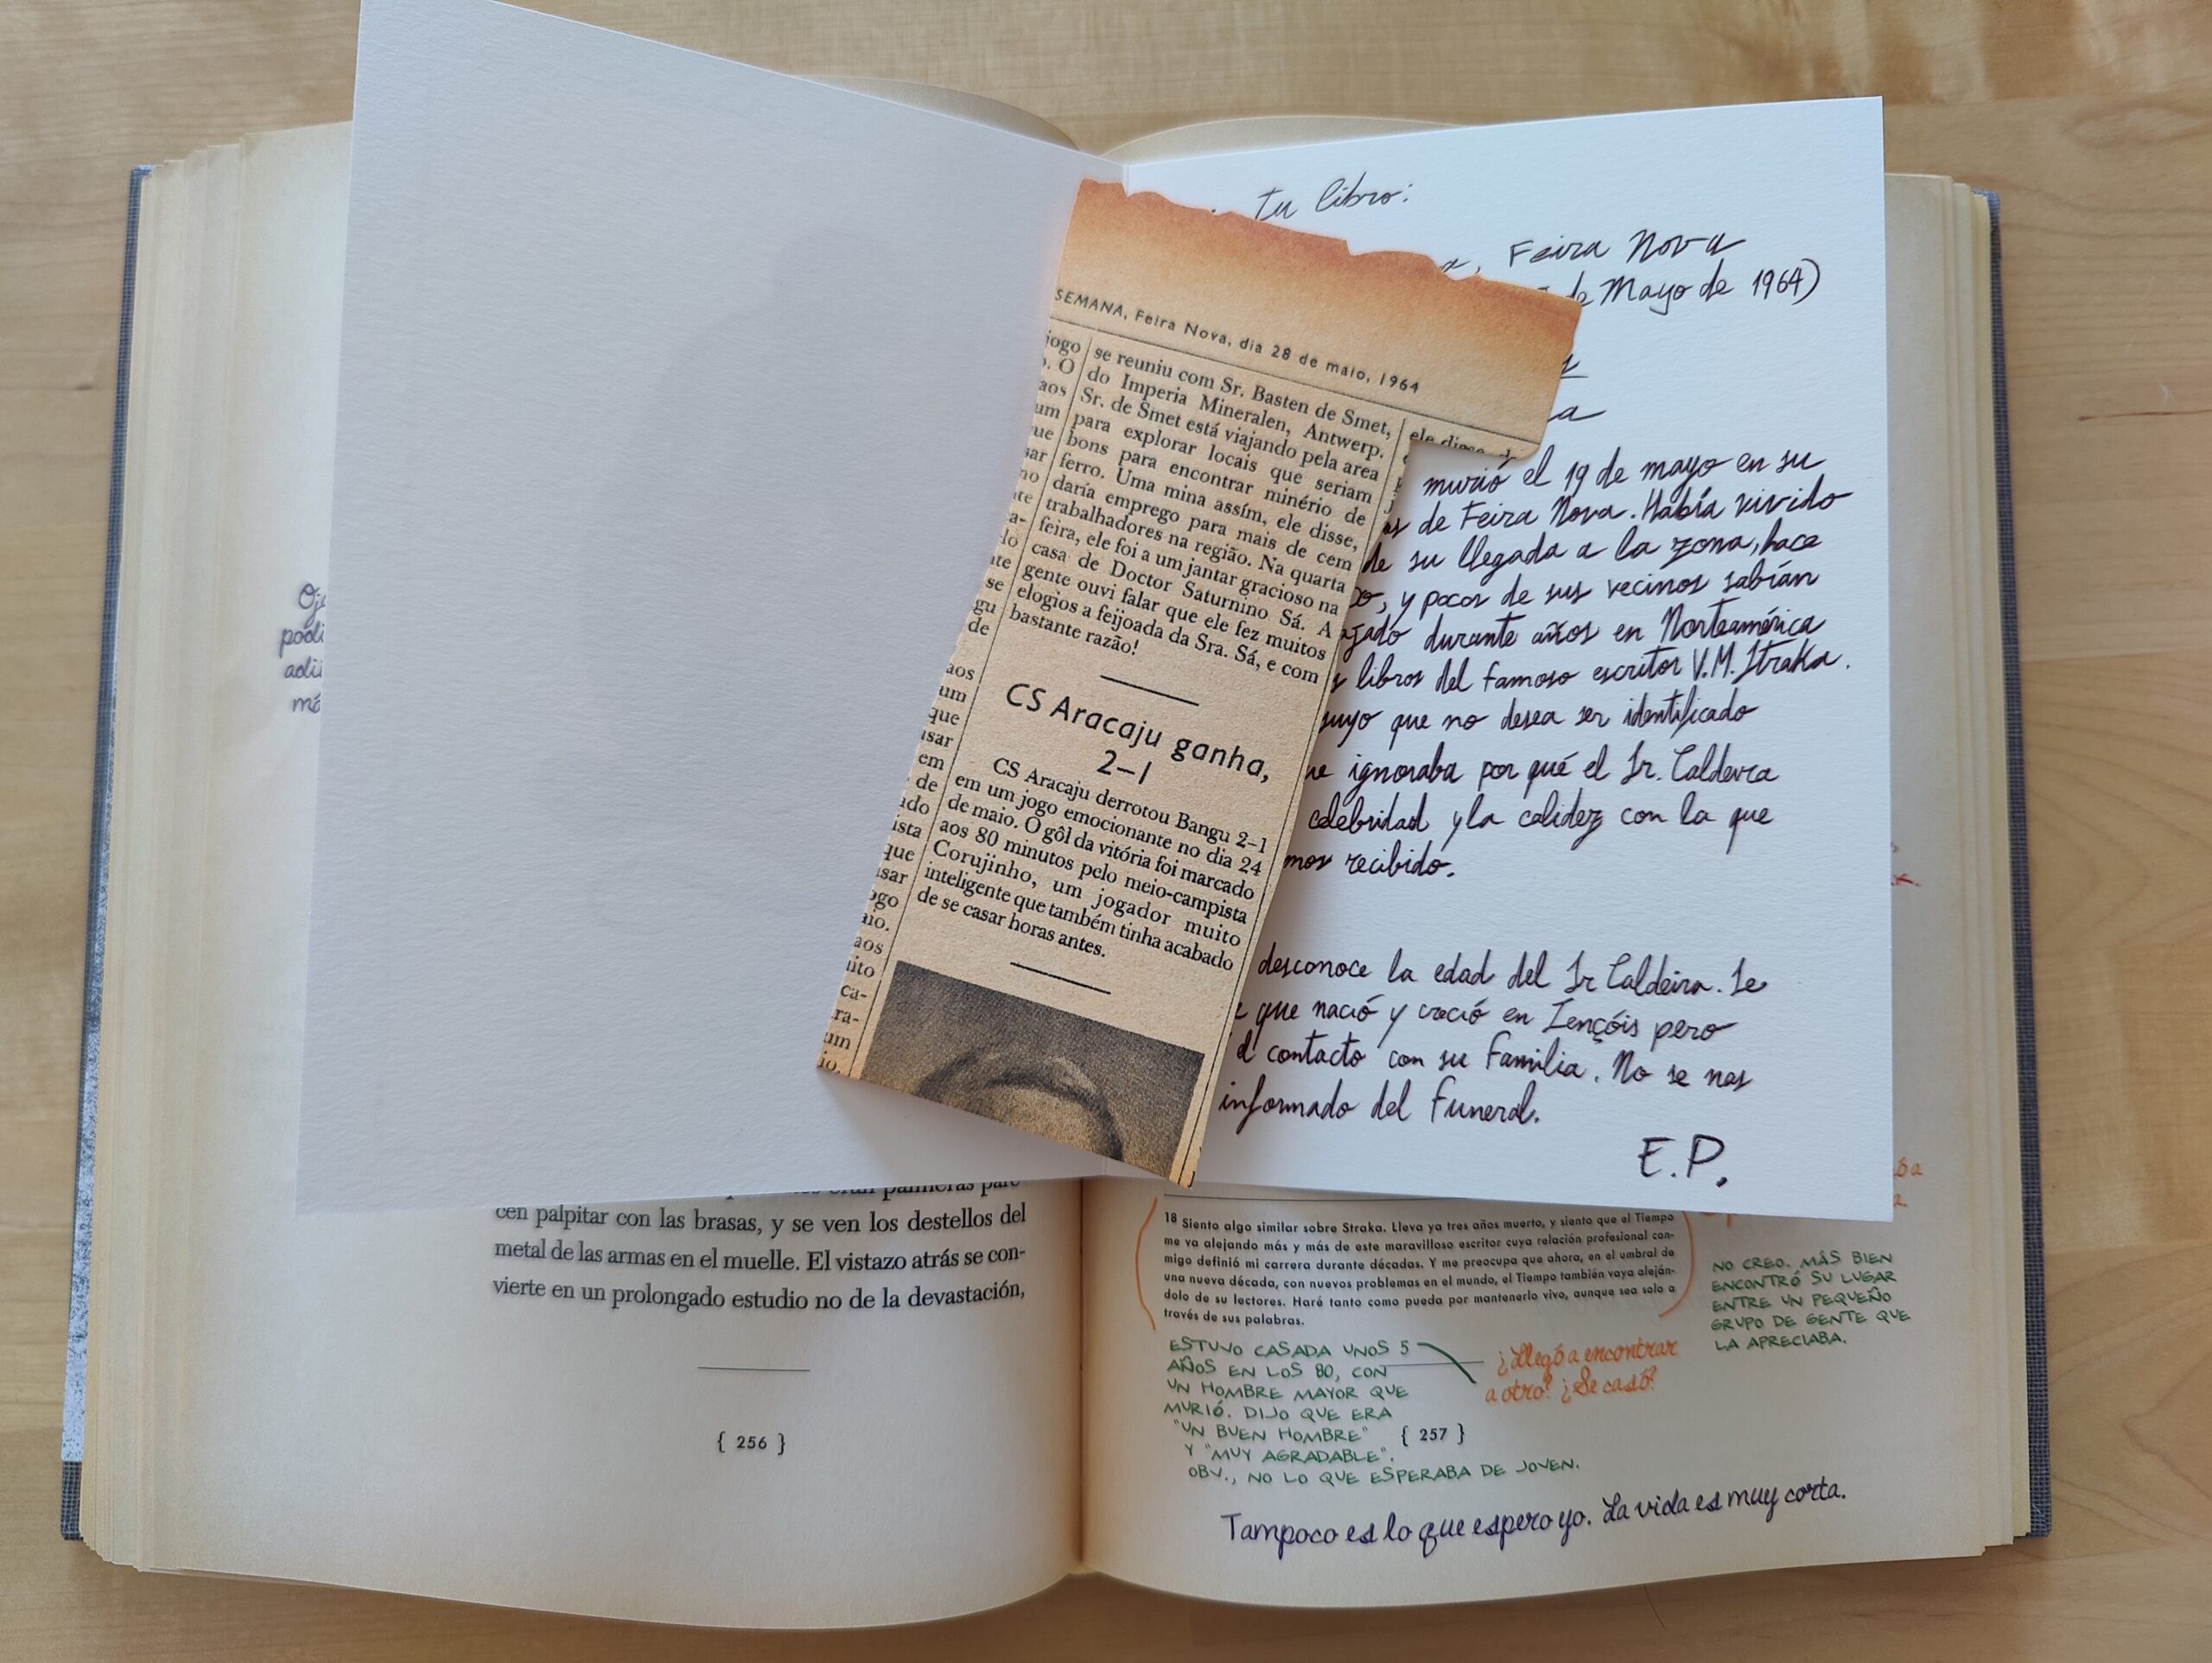 tu libro:
Feira Nova
de Mayo de 1964)
a
murió el 19 de mayo en su
de Feira Nova. Había vivido
de su llegada a la zona, hace
y pocos de sus vecinos sabían
durante años en Norteamérica
libros del famoso escritor V.M. Straka.
suyo que no desea ser identificado
ignoraba por qué el Sr. Caldeira
celebridad y la calidez con la que
recibido.
desconoce la edad del Sr Caldeira. Se
que nació y creció en Lençóis pero
el contacto con su familia. No se nos
informado del funeral.
E.P.
SEMANA, Feira Nova, dia 28 de maio, 1964
jogo
. O
aos
um
ue
sar
no
te
a-
do
te
se
gu
de
aos
um
que
sar
em
de
ado
ista
que
sar
ogo
aio.
aos
ito
ca-
ra-
um
io.
se reuniu com Sr. Basten de Smet,
do Imperia Mineralen, Antwerp.
Sr. de Smet está viajando pela area
para explorar locais que seriam
bons para encontrar minério de
ferro. Uma mina assím, ele disse,
daría emprego para mais de cem
trabalhadores na região. Na quarta
feira, ele foi a um jantar gracioso na
casa de Doctor Saturnino Sá. A
gente ouvi falar que ele fez muitos
elogios a feijoada da Sra. Sá, e com
bastante razão!
CS Aracaju ganha,
2–1
CS Aracaju derrotou Bangu 2–1
em um jogo emocionante no dia 24
de maio. O gôl da vitória foi marcado
aos 80 minutos pelo meio-campista
Corujinho, um jogador muito
inteligente que também tinha acabado
de se casar horas antes.
ele disse
palmeras pare-
cen palpitar con las brasas, y se ven los destellos del
metal de las armas en el muelle. El vistazo atrás se con-
vierte en un prolongado estudio no de la devastación,
{ 256 }
18 Siento algo similar sobre Straka. Lleva ya tres años muerto, y siento que el Tiempo
me va alejando más y más de este maravilloso escritor cuya relación profesional con-
migo definió mi carrera durante décadas. Y me preocupa que ahora, en el umbral de
una nueva década, con nuevos problemas en el mundo, el Tiempo también vaya aleján-
dolo de su lectores. Haré tanto como pueda por mantenerlo vivo, aunque sea solo a
través de sus palabras.
NO CREO. MÁS BIEN
ENCONTRÓ SU LUGAR
ENTRE UN PEQUEÑO
GRUPO DE GENTE QUE
LA APRECIABA.
ESTUVO CASADA UNOS 5
AÑOS EN LOS 80, CON
UN HOMBRE MAYOR QUE
MURIÓ. DIJO QUE ERA
"UN BUEN HOMBRE"
Y "MUY AGRADABLE".
OBV., NO LO QUE ESPERABA DE JOVEN.
¿Llegó a encontrar
a otro? ¿Se casó?
{ 257 }
Tampoco es lo que espero yo. La vida es muy corta.